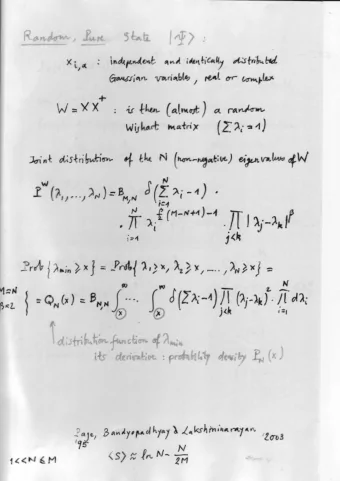 Random, Pure State |Ψ⟩ :
x_{i,a} : independent and identically distributed
Gaussian variables, real or complex
W = XX⁺ : is then (almost) a random
Wishart matrix (Σλi = 1)
Joint distribution of the N (non-negative) eigenvalues of W
P^W(λ1,...,λN) = B_{M,N} δ(Σ_{i=1}^{N} λi − 1) ·
· ∏_{i=1}^{N} λi^{β/2 (M−N+1)−1} · ∏_{j<k} |λj−λk|^β
Prob{λmin ≥ x} = Prob{λ1 ≥ x, λ2 ≥ x, ...., λN ≥ x} =
M=N
β=2 } = Q_N(x) = B_{N,N} ∫_x^∞ ... ∫_x^∞ δ(Σλi−1) ∏_{j<k} (λj−λk)² · ∏_{i=1}^{N} dλi
distribution function of λmin
its derivative : probability density P_N(x)
Page, Bandyopadhyay & Lakshminarayan
'95 2003
1<<N≤M ⟨S⟩ ≈ ln N − N/2M